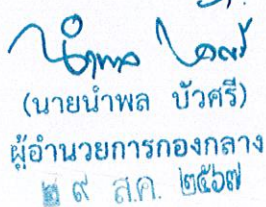 (นายนำพล บัวศรี)
ผู้อำนวยการกองกลาง
๒๙ ส.ค. ๒๕๖๗